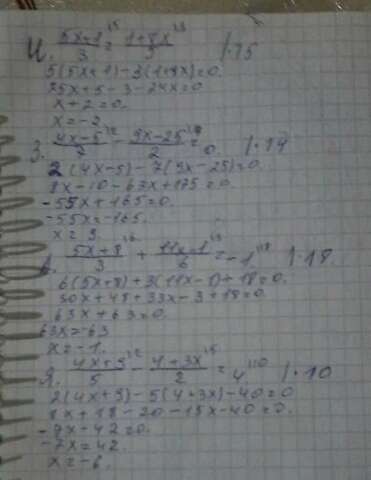 и. 5x+1/3 = 1+8x/5 |·15
5(5x+1)-3(1+8x)=0
25x+5-3-24x=0
x+2=0.
x=-2.
3. 4x-5/7 - 9x-25/2 = 0 |·14
2(4x-5)-7(9x-25)=0
8x-10-63x+175=0.
-55x+165=0.
-55x=-165.
x=3.
5x+8/3 + 11x-1/6 = -1 |·18.
6(5x+8)+3(11x-1)+18=0.
30x+48+33x-3+18=0
63x+63=0.
63x=-63
x=-1.
4x+9/5 - 4+3x/2 = 4 |·10
2(4x+9)-5(4+3x)-40=0
8x+18-20-15x-40=0.
-7x-42=0.
-7x=42.
x=-6.